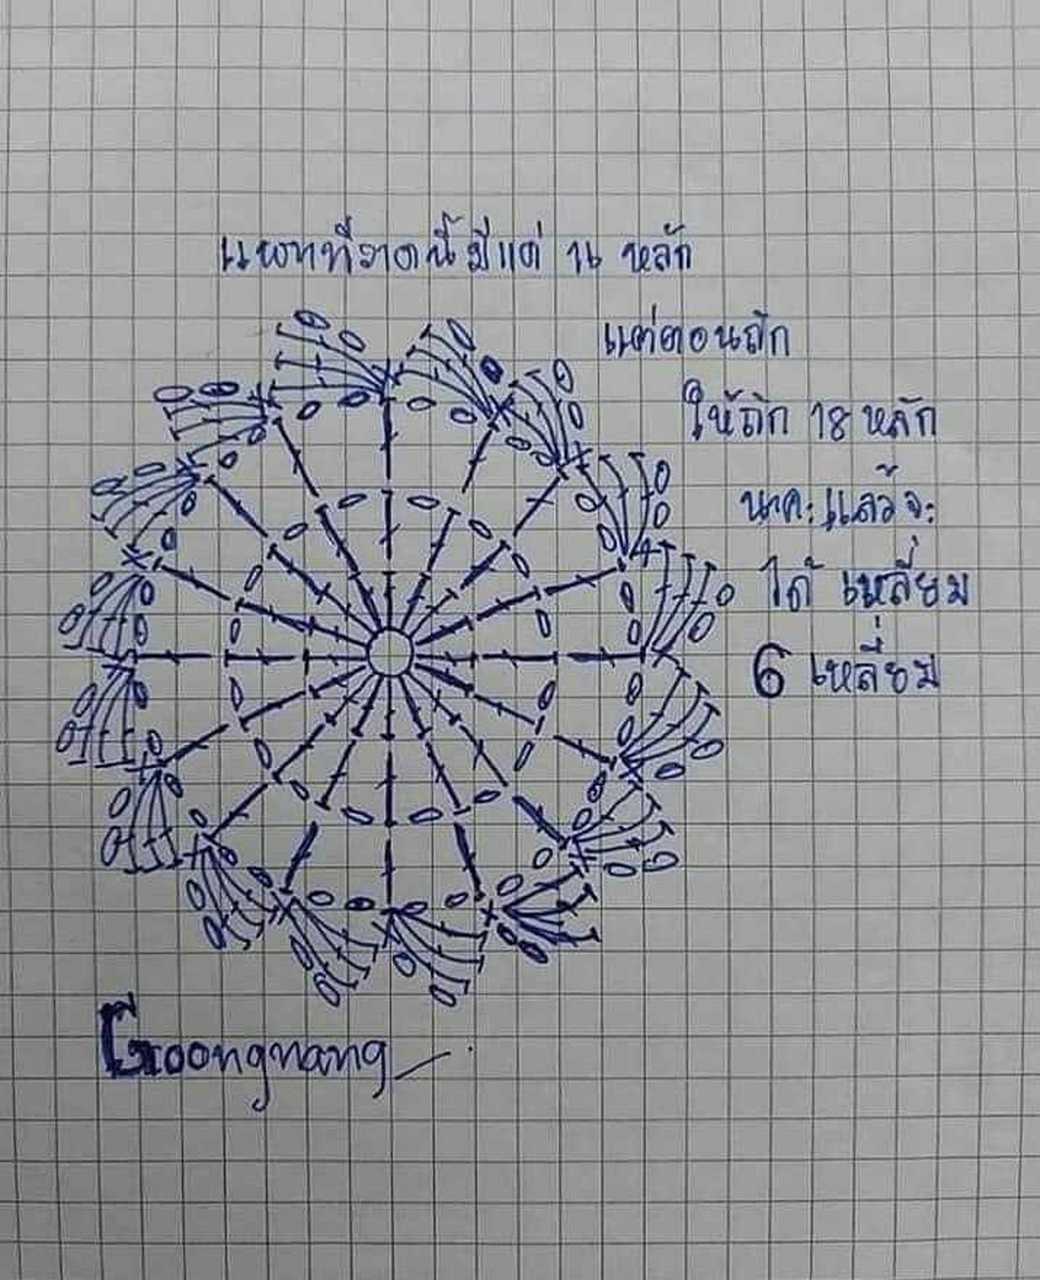 แพทที่วาดนี้มีแค่ 16 หลัก
แต่ตอนถัก
ให้ถัก 18 หลัก
นะคะแล้วจะ
ได้ เหลี่ยม
6 เหลี่ยม
Groongnang